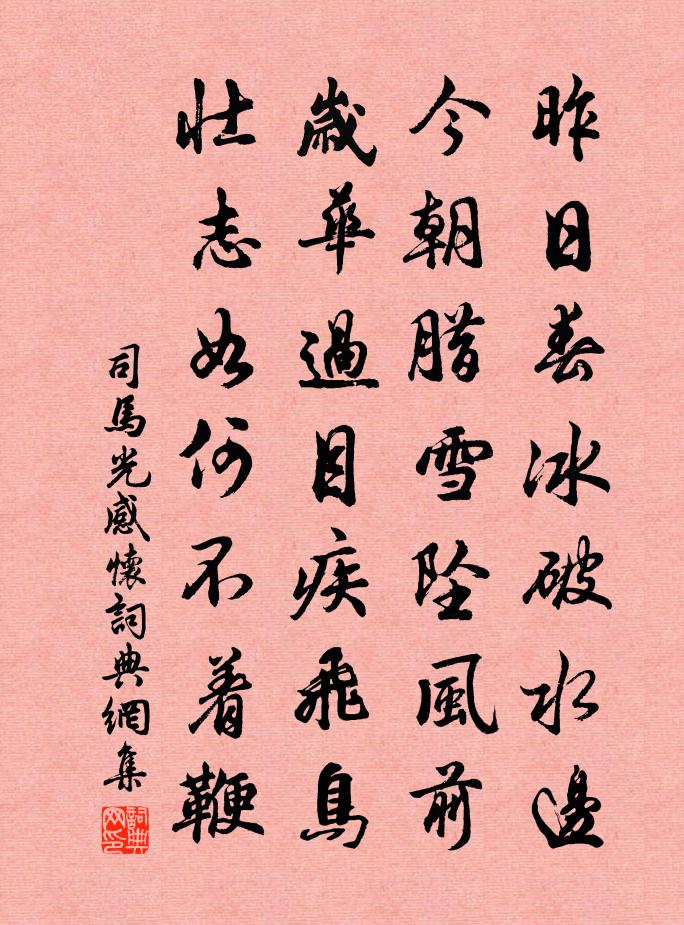 昨日春冰破水邊
今朝腊雪坠風前
歲華過目疾飛鳥
壯志如何不着鞭
司馬光感懷詞典網集
詞典网印